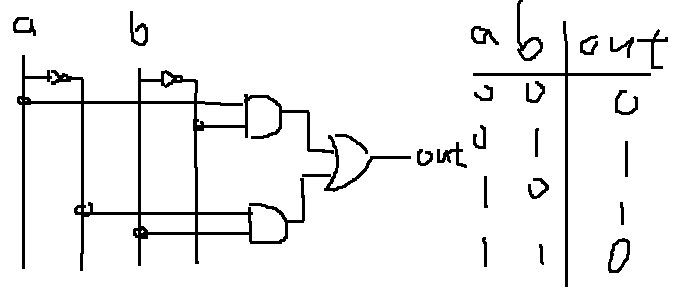 a b
out
a b out
0 0 0
0 1 1
1 0 1
1 1 0